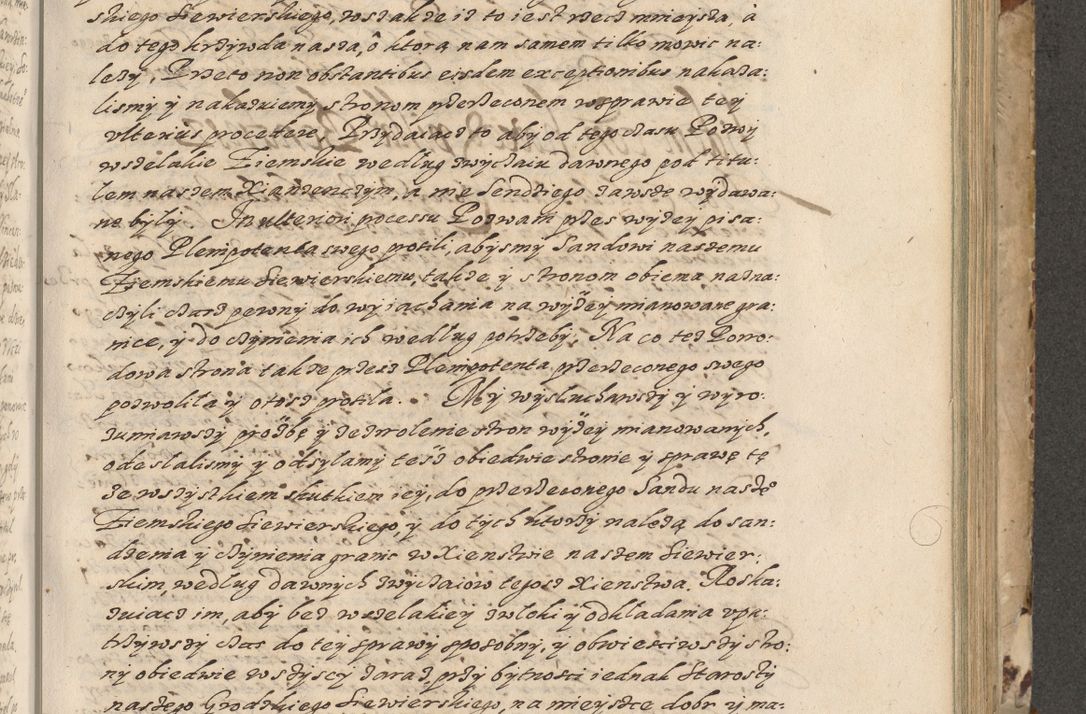 skiego Siewierskiego, wszakże iż to iest rzecz mnieysza, à
do tego krzywda nasza, ô ktorą nam samem tilko mowic na:
leży, Przeto non obstantibus eisdem exceptionibus nakaza:
lismy y nakazuiemy stronom przerzeconem w sprawie tey
vlterius procedere, Przydaiącz to aby od tego czasu Pozwy
wszelakie Ziemskie według zwyczaiu dawnego pod titu:
lem naszem Xiązenczym, a nie Sendziego zawsze wydawa:
ne były. In ulteriori pocessu Pozwani przes wyżey pisa:
nego Plenipotenta swego prosili, abysmy Sandowi naszemu
Ziemskiemu Siewierskiemu, także y stronom obiema nazna:
czyli czasz pewny do wyiachania na wyżey mianowane gra:
nice, y do czynienia ich według potrzeby, Na co też Powo:
dowa strona także przesz Plenipotenta przerzeconego swego
pozwoliła y otosz prosiła. My wysłuchawszy y wyro:
zumiawszy proźbę y zezwolenie stron wyżey mianowanych,
odeslalismy y odsylamy tesz obiedwie stronie y sprawę tę
ze wszystkiem skutkiem iey, do przerzeconego Sandu nasze:
Ziemskiego Siewierskiego, y do tych ktorzy należą do san:
dzenia y czynienia granic w Xienstwie naszem Siewier:
skim, według dawnych zwyczaiow tegosz Xienstwa. Roska:
zuiącz im, aby bez wszelakiey zwłoki y odkładania vpa:
trzywszy czas do tey sprawy sposobny, y obwiesciwszy stro:
ny obiedwie wszyscy zaraz, przy bytnosci iednak Starosty
naszego Grodzkiego Siewierskiego, na mieysce dobr y ma: